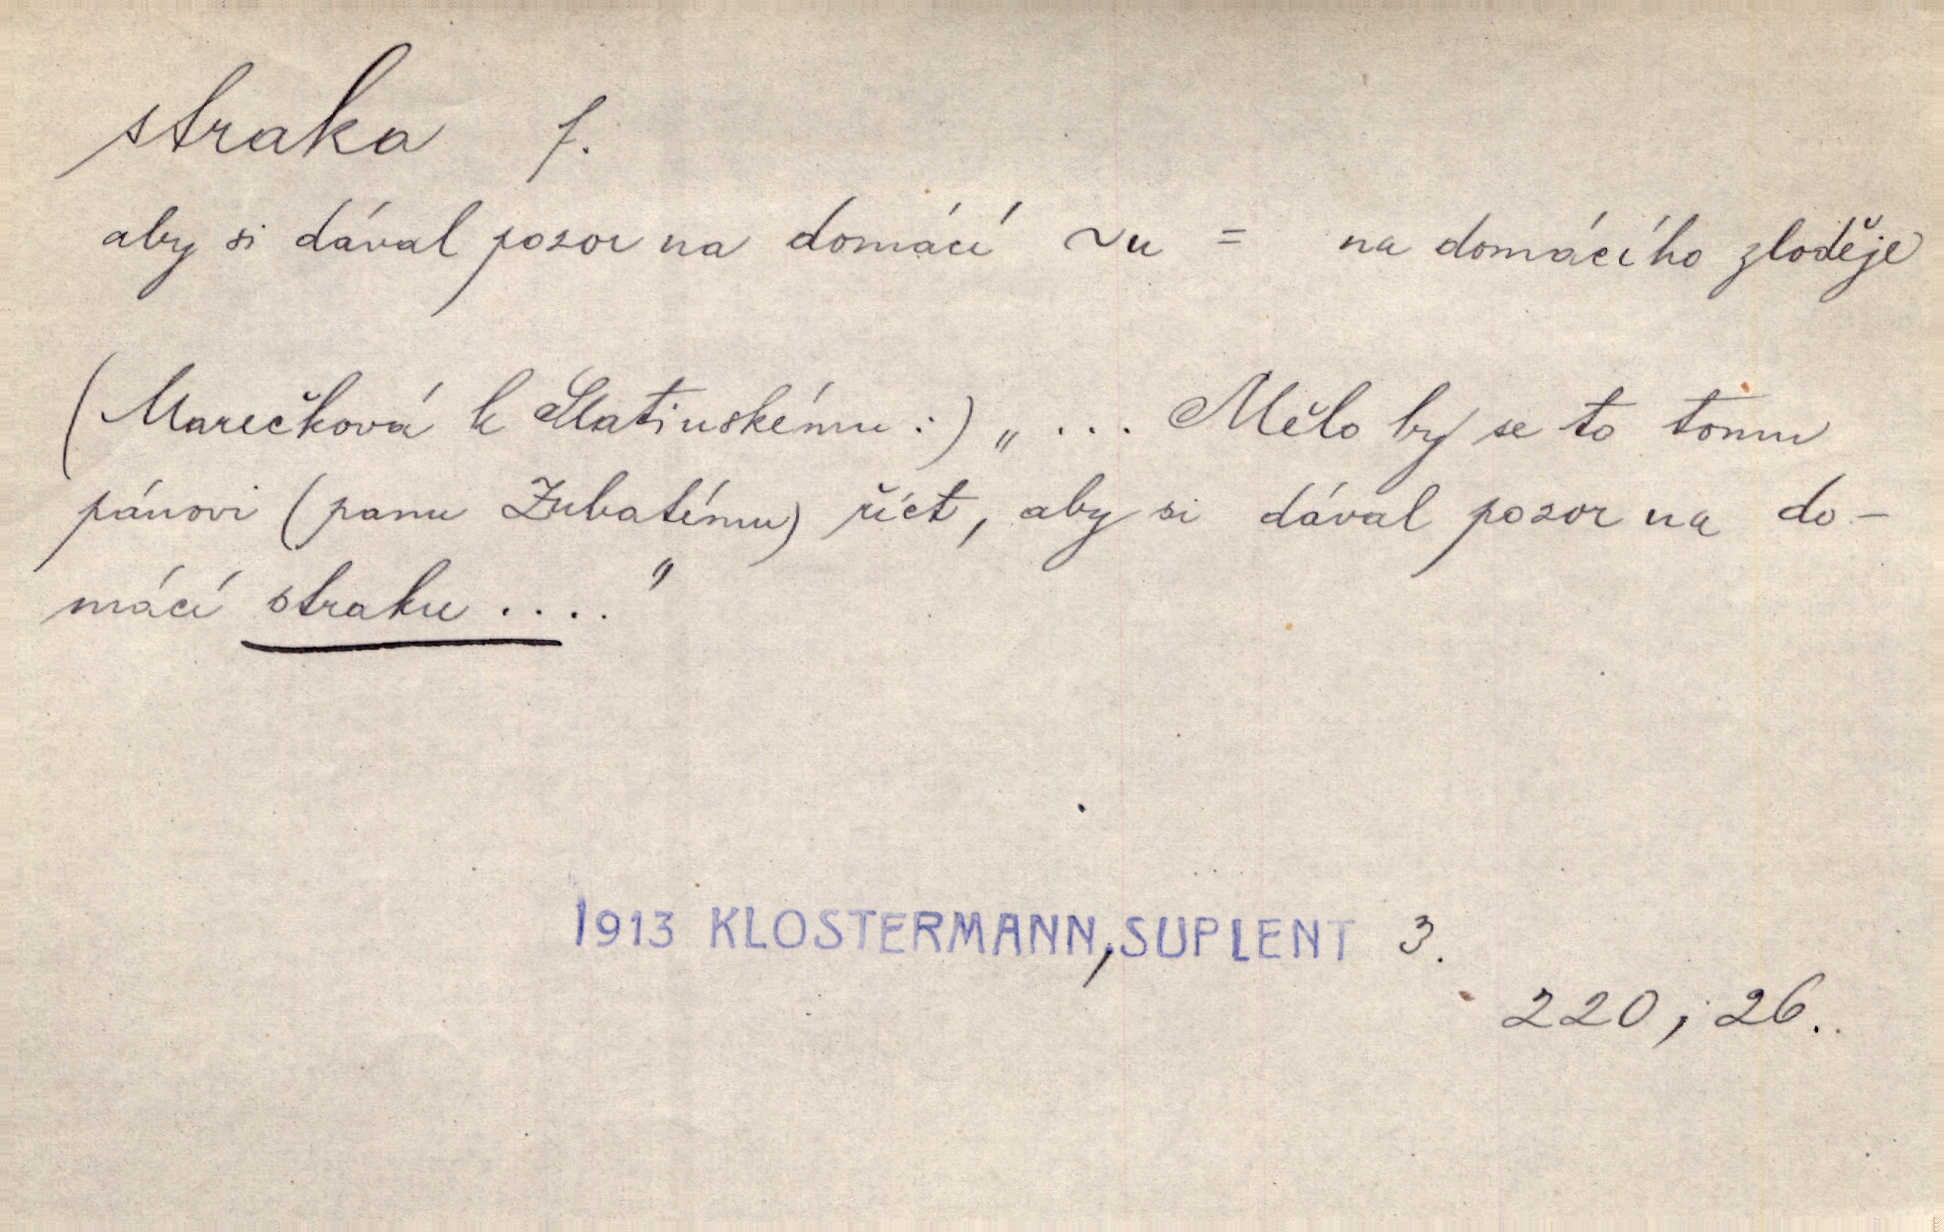 straka f.
aby si dával pozor na domácí ~u = na domácího zloděje
(Marečková k Slatinskému :) „ ... Mělo by se to tomu
pánovi (panu Zubatému) říct, aby si dával pozor na do-
mácí straku ....“
1913 KLOSTERMANN, SUPLENT 3.
220, 26.